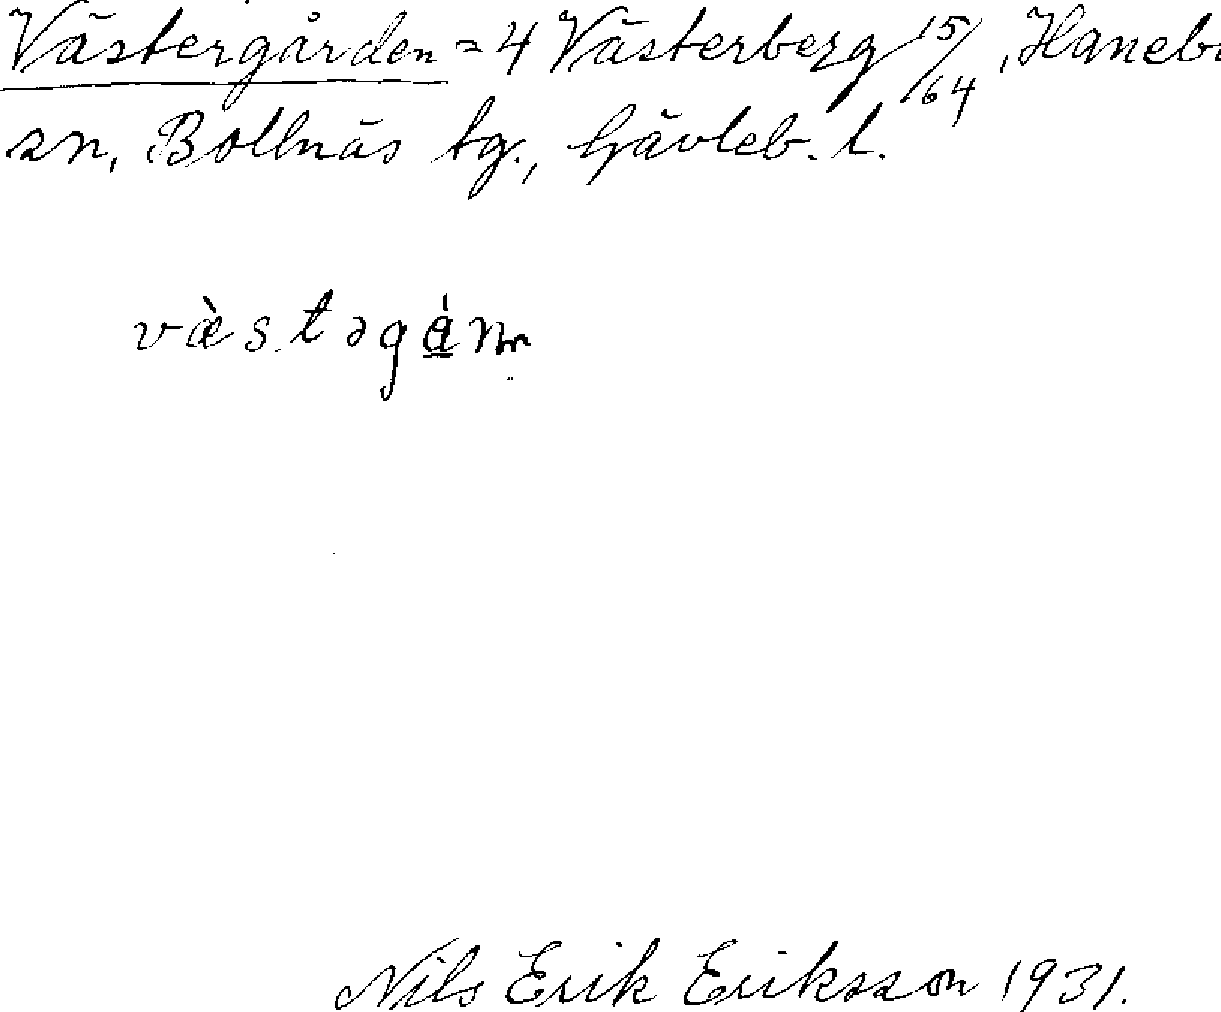 Västergården = 4 Västerberg 15/64, Haneb
sn, Bollnäs tg., Gävleb. l.
væ̀stəgá̲n
Nils Erik Eriksson 1931.